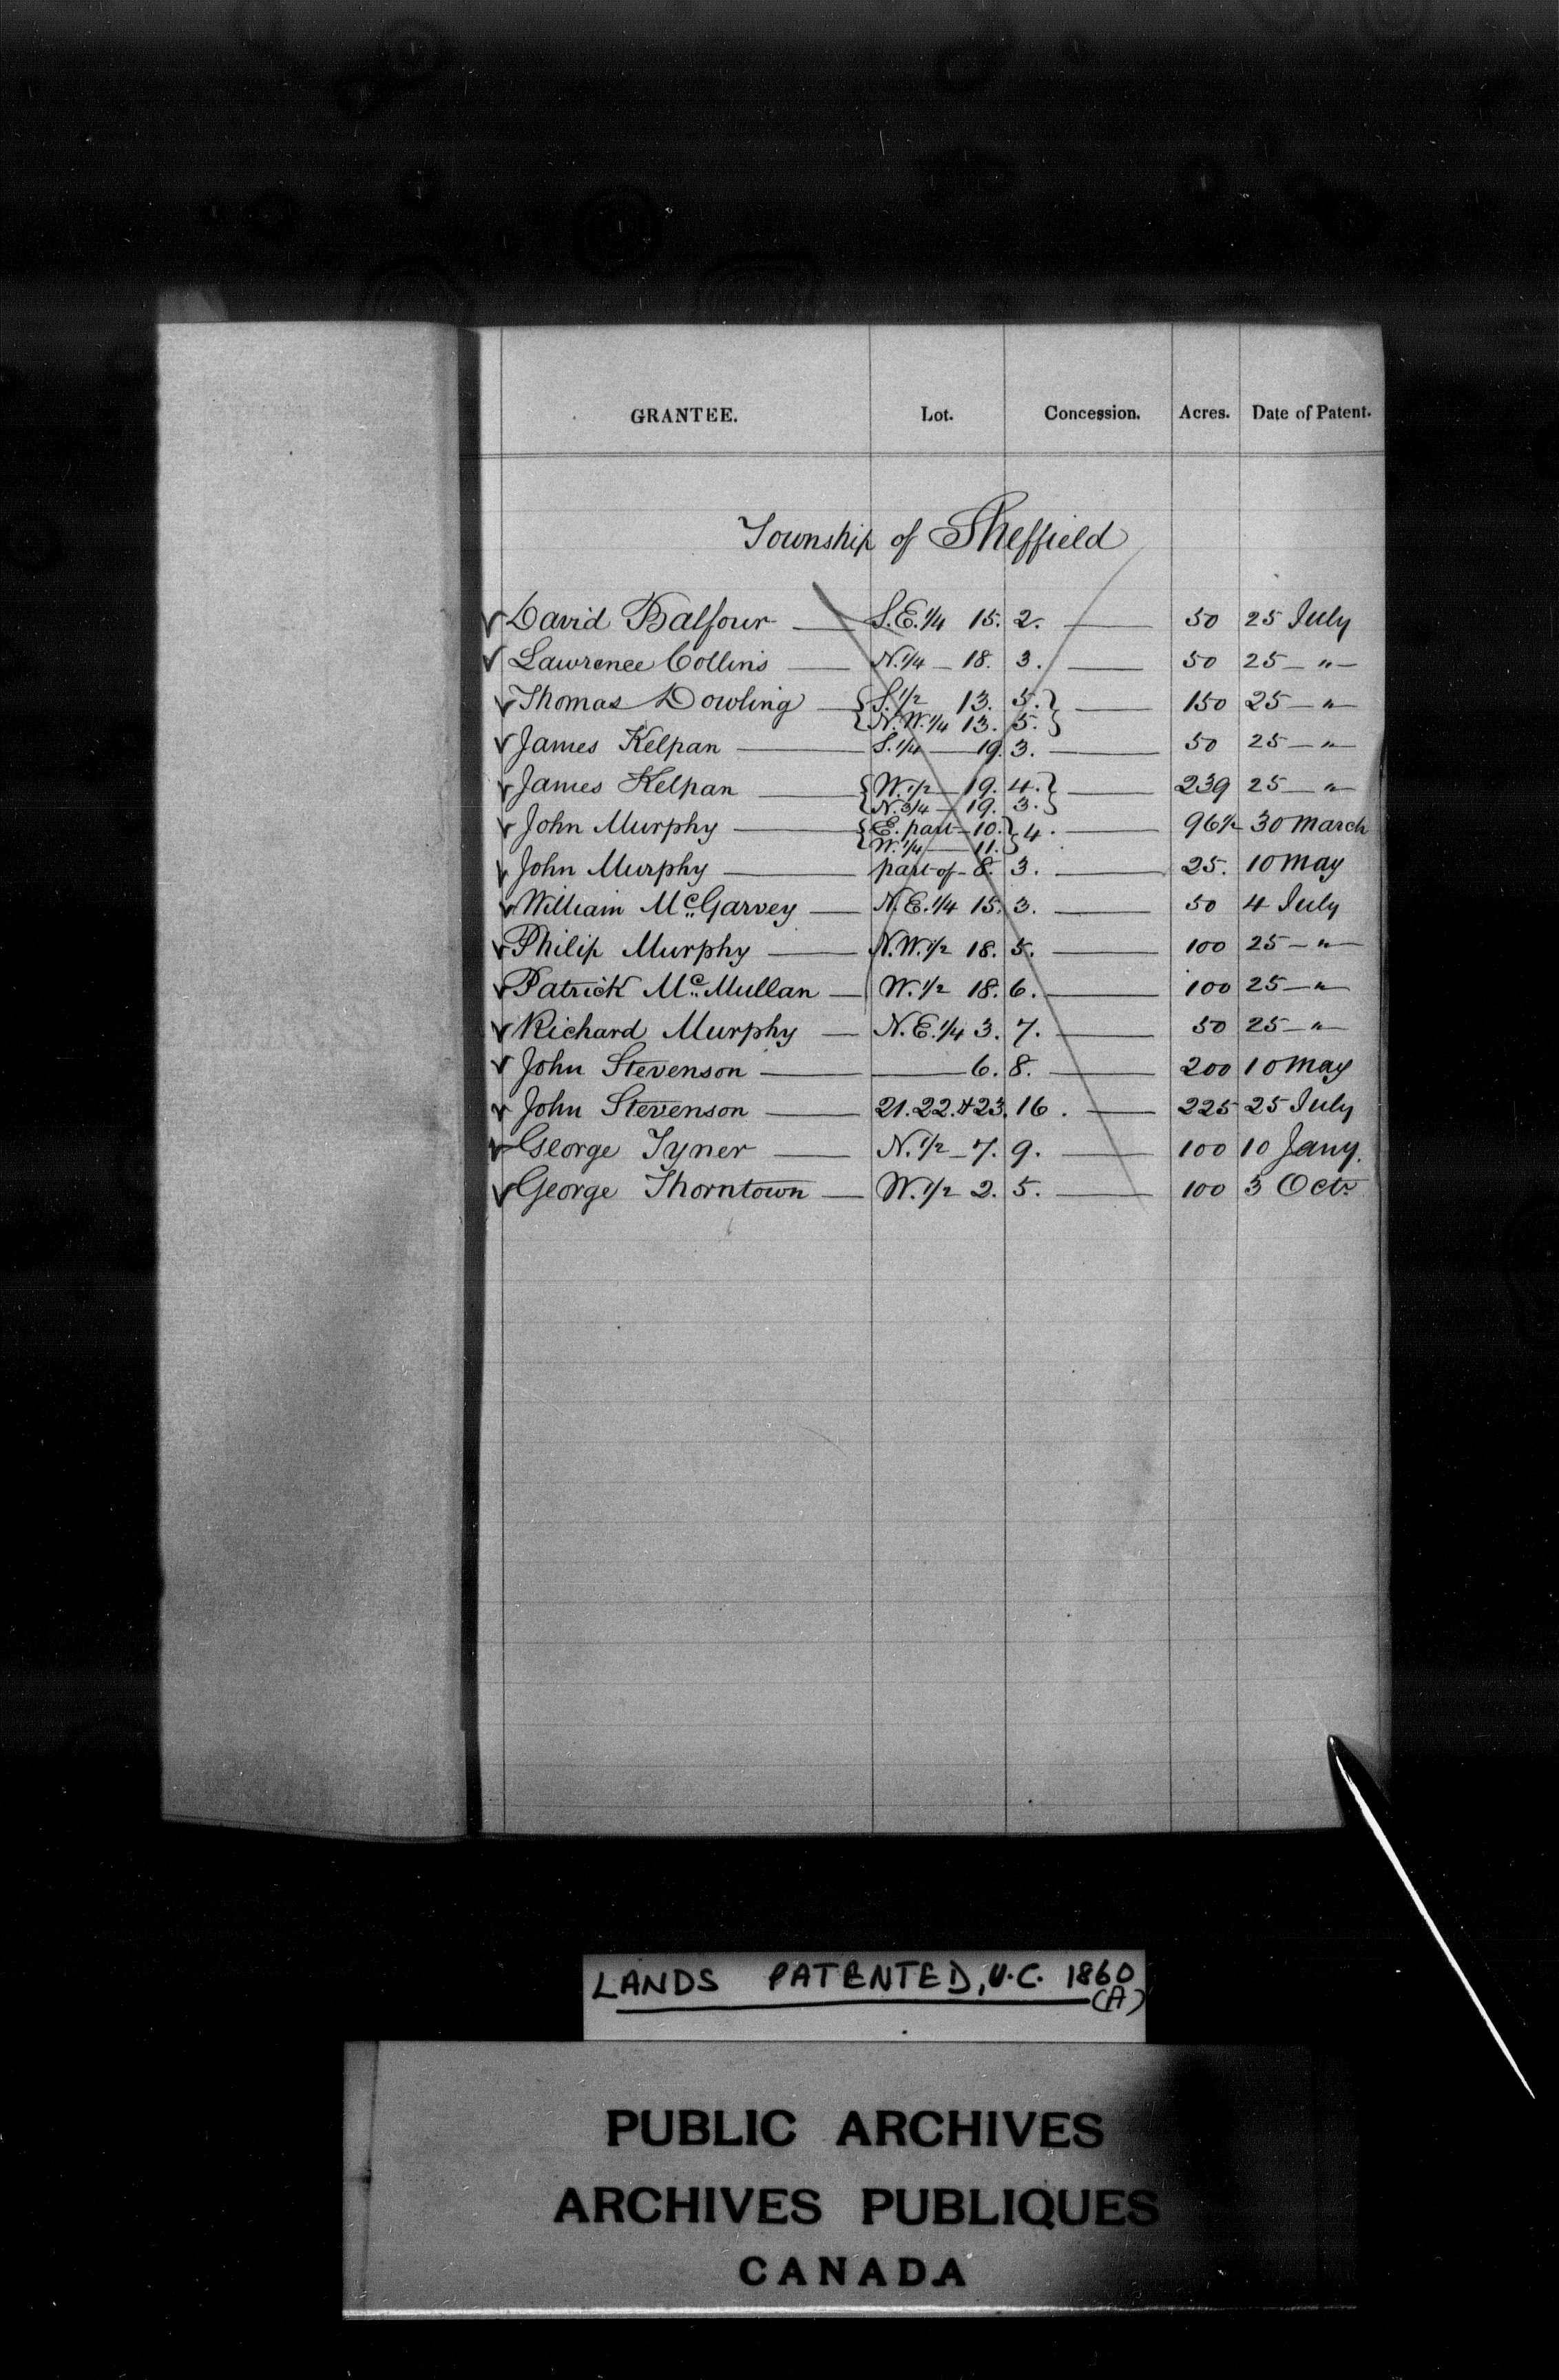 GRANTEE. Lot. Concession. Acres. Date of Patent.
Township of Sheffield
David Balfour — S.E. 1/4 15. 2. — 50 25 July
Lawrence Collins — N. 1/4 — 18. 3. — 50 25 — " —
Thomas Dowling — { S. 1/2 13. 5. } — 150 25 — " —
{ N.W. 1/4 13. 5. }
James Kelpan — S. 1/4 — 19. 3. — 50 25 — " —
James Kelpan — { W. 1/2 — 19. 4. } — 239 25 — " —
{ N. 3/4 — 19. 3. }
John Murphy — { E. part — 10. } 4. — 96 1/2 30 March
{ W. 1/4 — 11. }
John Murphy — part of — 8. 3. — 25. 10 May
William McGarvey — N.E. 1/4 15. 3. — 50 4 July
Philip Murphy — N.W. 1/2 18. 5. — 100 25 — " —
Patrick McMullan — W. 1/2 18. 6. — 100 25 — " —
Richard Murphy — N.E. 1/4 3. 7. — 50 25 — " —
John Stevenson — 6. 8. — 200 10 May
John Stevenson — 21. 22. & 23. 16. — 225 25 July
George Tyner — N. 1/2 — 7. 9. — 100 10 Jany.
George Thorntown — W. 1/2 2. 5. — 100 3 Octr
LANDS PATENTED, U.C. 1860
(A)
PUBLIC ARCHIVES
ARCHIVES PUBLIQUES
CANADA